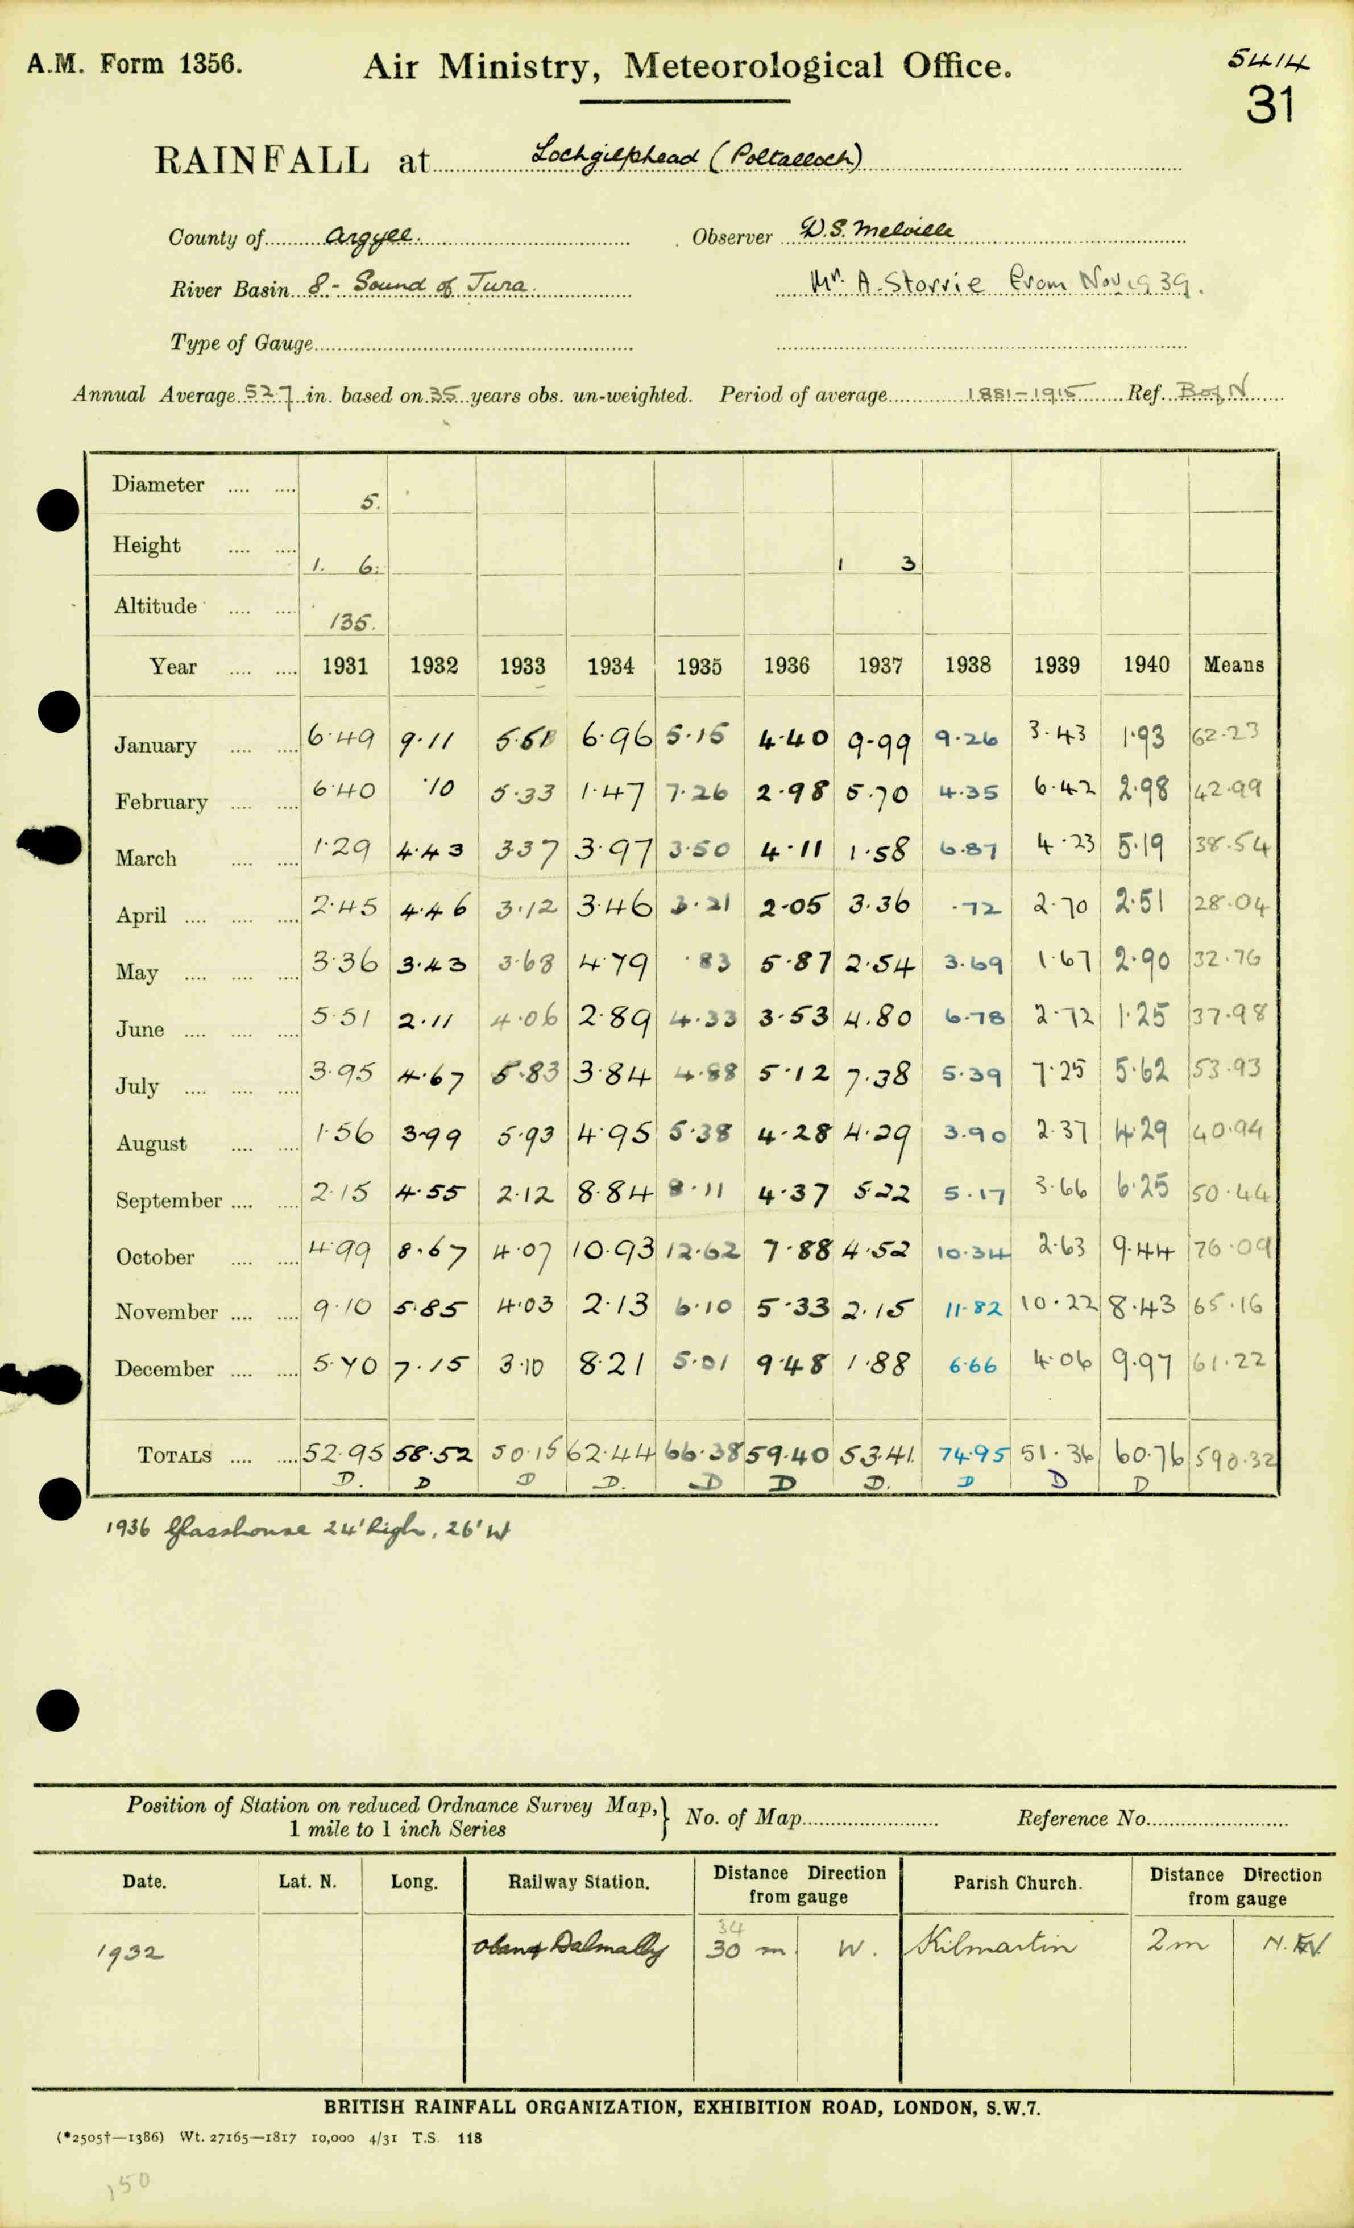 A.M. Form 1356. Air Ministry, Meteorological Office. 5414
31
RAINFALL at Lochgilphead (Poltalloch)
County of Argyll. Observer D.S. Melville
River Basin 8 - Sound of Jura. Mr. A. Storrie from Nov 1939.
Type of Gauge
Annual Average 52.7 in. based on 35 years obs. un-weighted. Period of average 1881-1915 Ref. B of N
Diameter .... .... 5.
Height .... .... 1. 6. 1 3
Altitude .... .... 135.
Year .... .... 1931 1932 1933 1934 1935 1936 1937 1938 1939 1940 Means
January .... .... 6.49 9.11 5.51 6.96 5.15 4.40 9.99 9.26 3.43 1.93 62.23
February .... .... 6.40 .10 5.33 1.47 7.26 2.98 5.70 4.35 6.42 2.98 42.99
March .... .... 1.29 4.43 3.37 3.97 3.50 4.11 1.58 6.87 4.23 5.19 38.54
April .... .... .... 2.45 4.46 3.12 3.46 3.21 2.05 3.36 .72 2.70 2.51 28.04
May .... .... .... 3.36 3.43 3.68 4.79 .83 5.87 2.54 3.69 1.67 2.90 32.76
June .... .... .... 5.51 2.11 4.06 2.89 4.33 3.53 4.80 6.78 2.72 1.25 37.98
July .... .... .... 3.95 4.67 5.83 3.84 4.88 5.12 7.38 5.39 7.25 5.62 53.93
August .... .... 1.56 3.99 5.93 4.95 5.38 4.28 4.29 3.90 2.37 4.29 40.94
September .... .... 2.15 4.55 2.12 8.84 8.11 4.37 5.22 5.17 3.66 6.25 50.44
October .... .... 4.99 8.67 4.07 10.93 12.62 7.88 4.52 10.34 2.63 9.44 76.09
November .... .... 9.10 5.85 4.03 2.13 6.10 5.33 2.15 11.82 10.22 8.43 65.16
December .... .... 5.70 7.15 3.10 8.21 5.01 9.48 1.88 6.66 4.06 9.97 61.22
TOTALS .... .... 52.95 58.52 50.15 62.44 66.38 59.40 53.41 74.95 51.36 60.76 590.32
D. D D D. D D D. D D D
1936 Glasshouse 24' high, 26' W
Position of Station on reduced Ordnance Survey Map, } No. of Map Reference No.
1 mile to 1 inch Series
Date. Lat. N. Long. Railway Station. Distance Direction Parish Church. Distance Direction
from gauge from gauge
34
1932 Dalmally 30 m W. Kilmartin 2m N.
BRITISH RAINFALL ORGANIZATION, EXHIBITION ROAD, LONDON, S.W.7.
(*2505†—1386) Wt. 27165—1817 10,000 4/31 T.S. 118
150